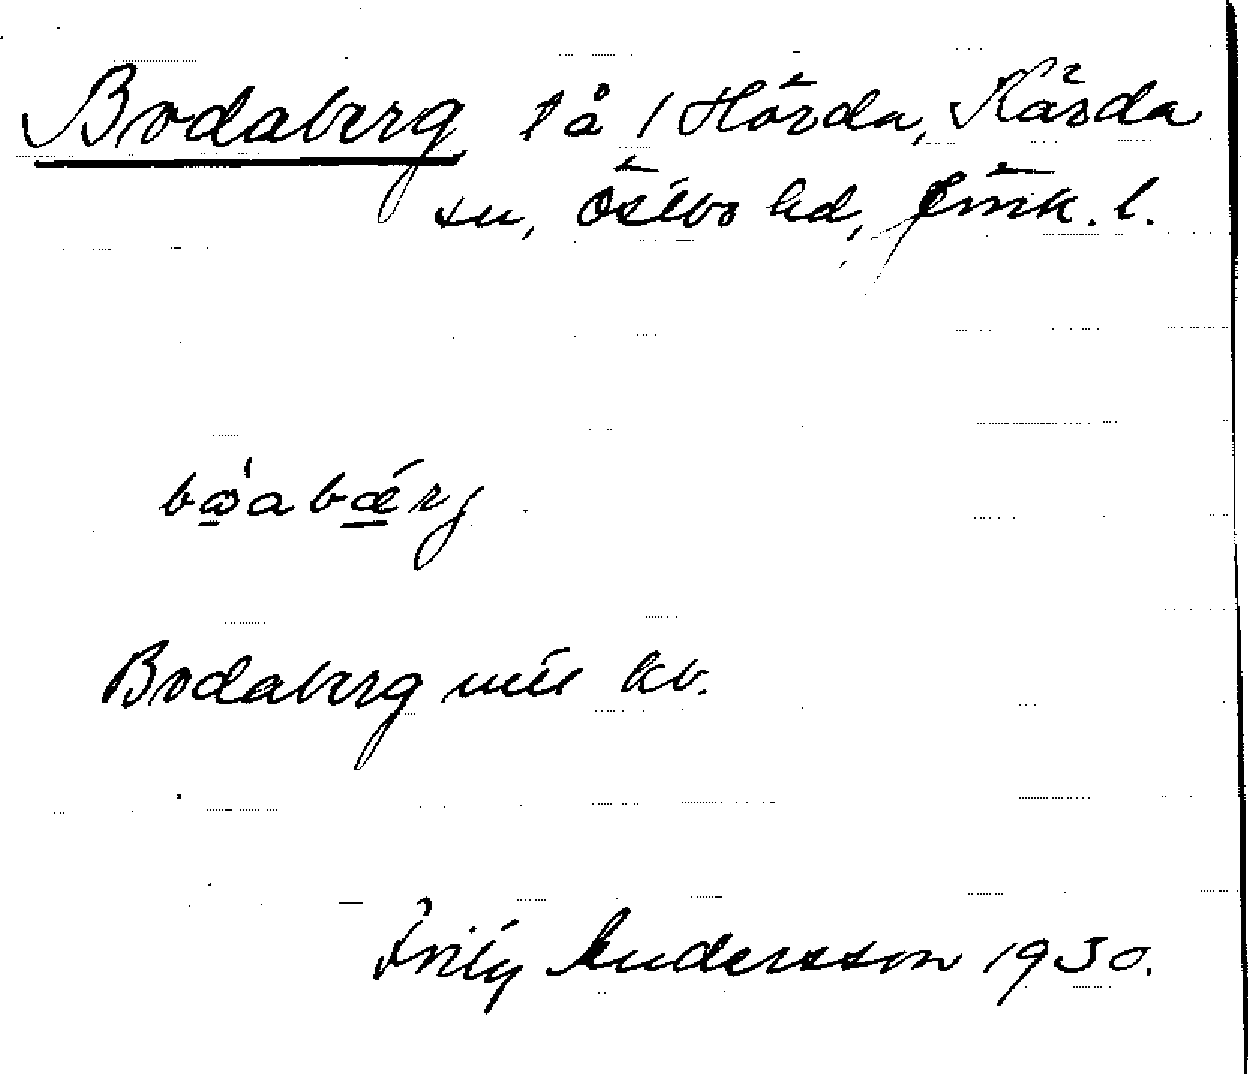 Bodaberg på / Hörda, Kärda
sn, Östbo hd, Jönk. l.
bὼ̠abǽ̠rj
Bodaberg mtr kb.
Frity Andersson 1930.